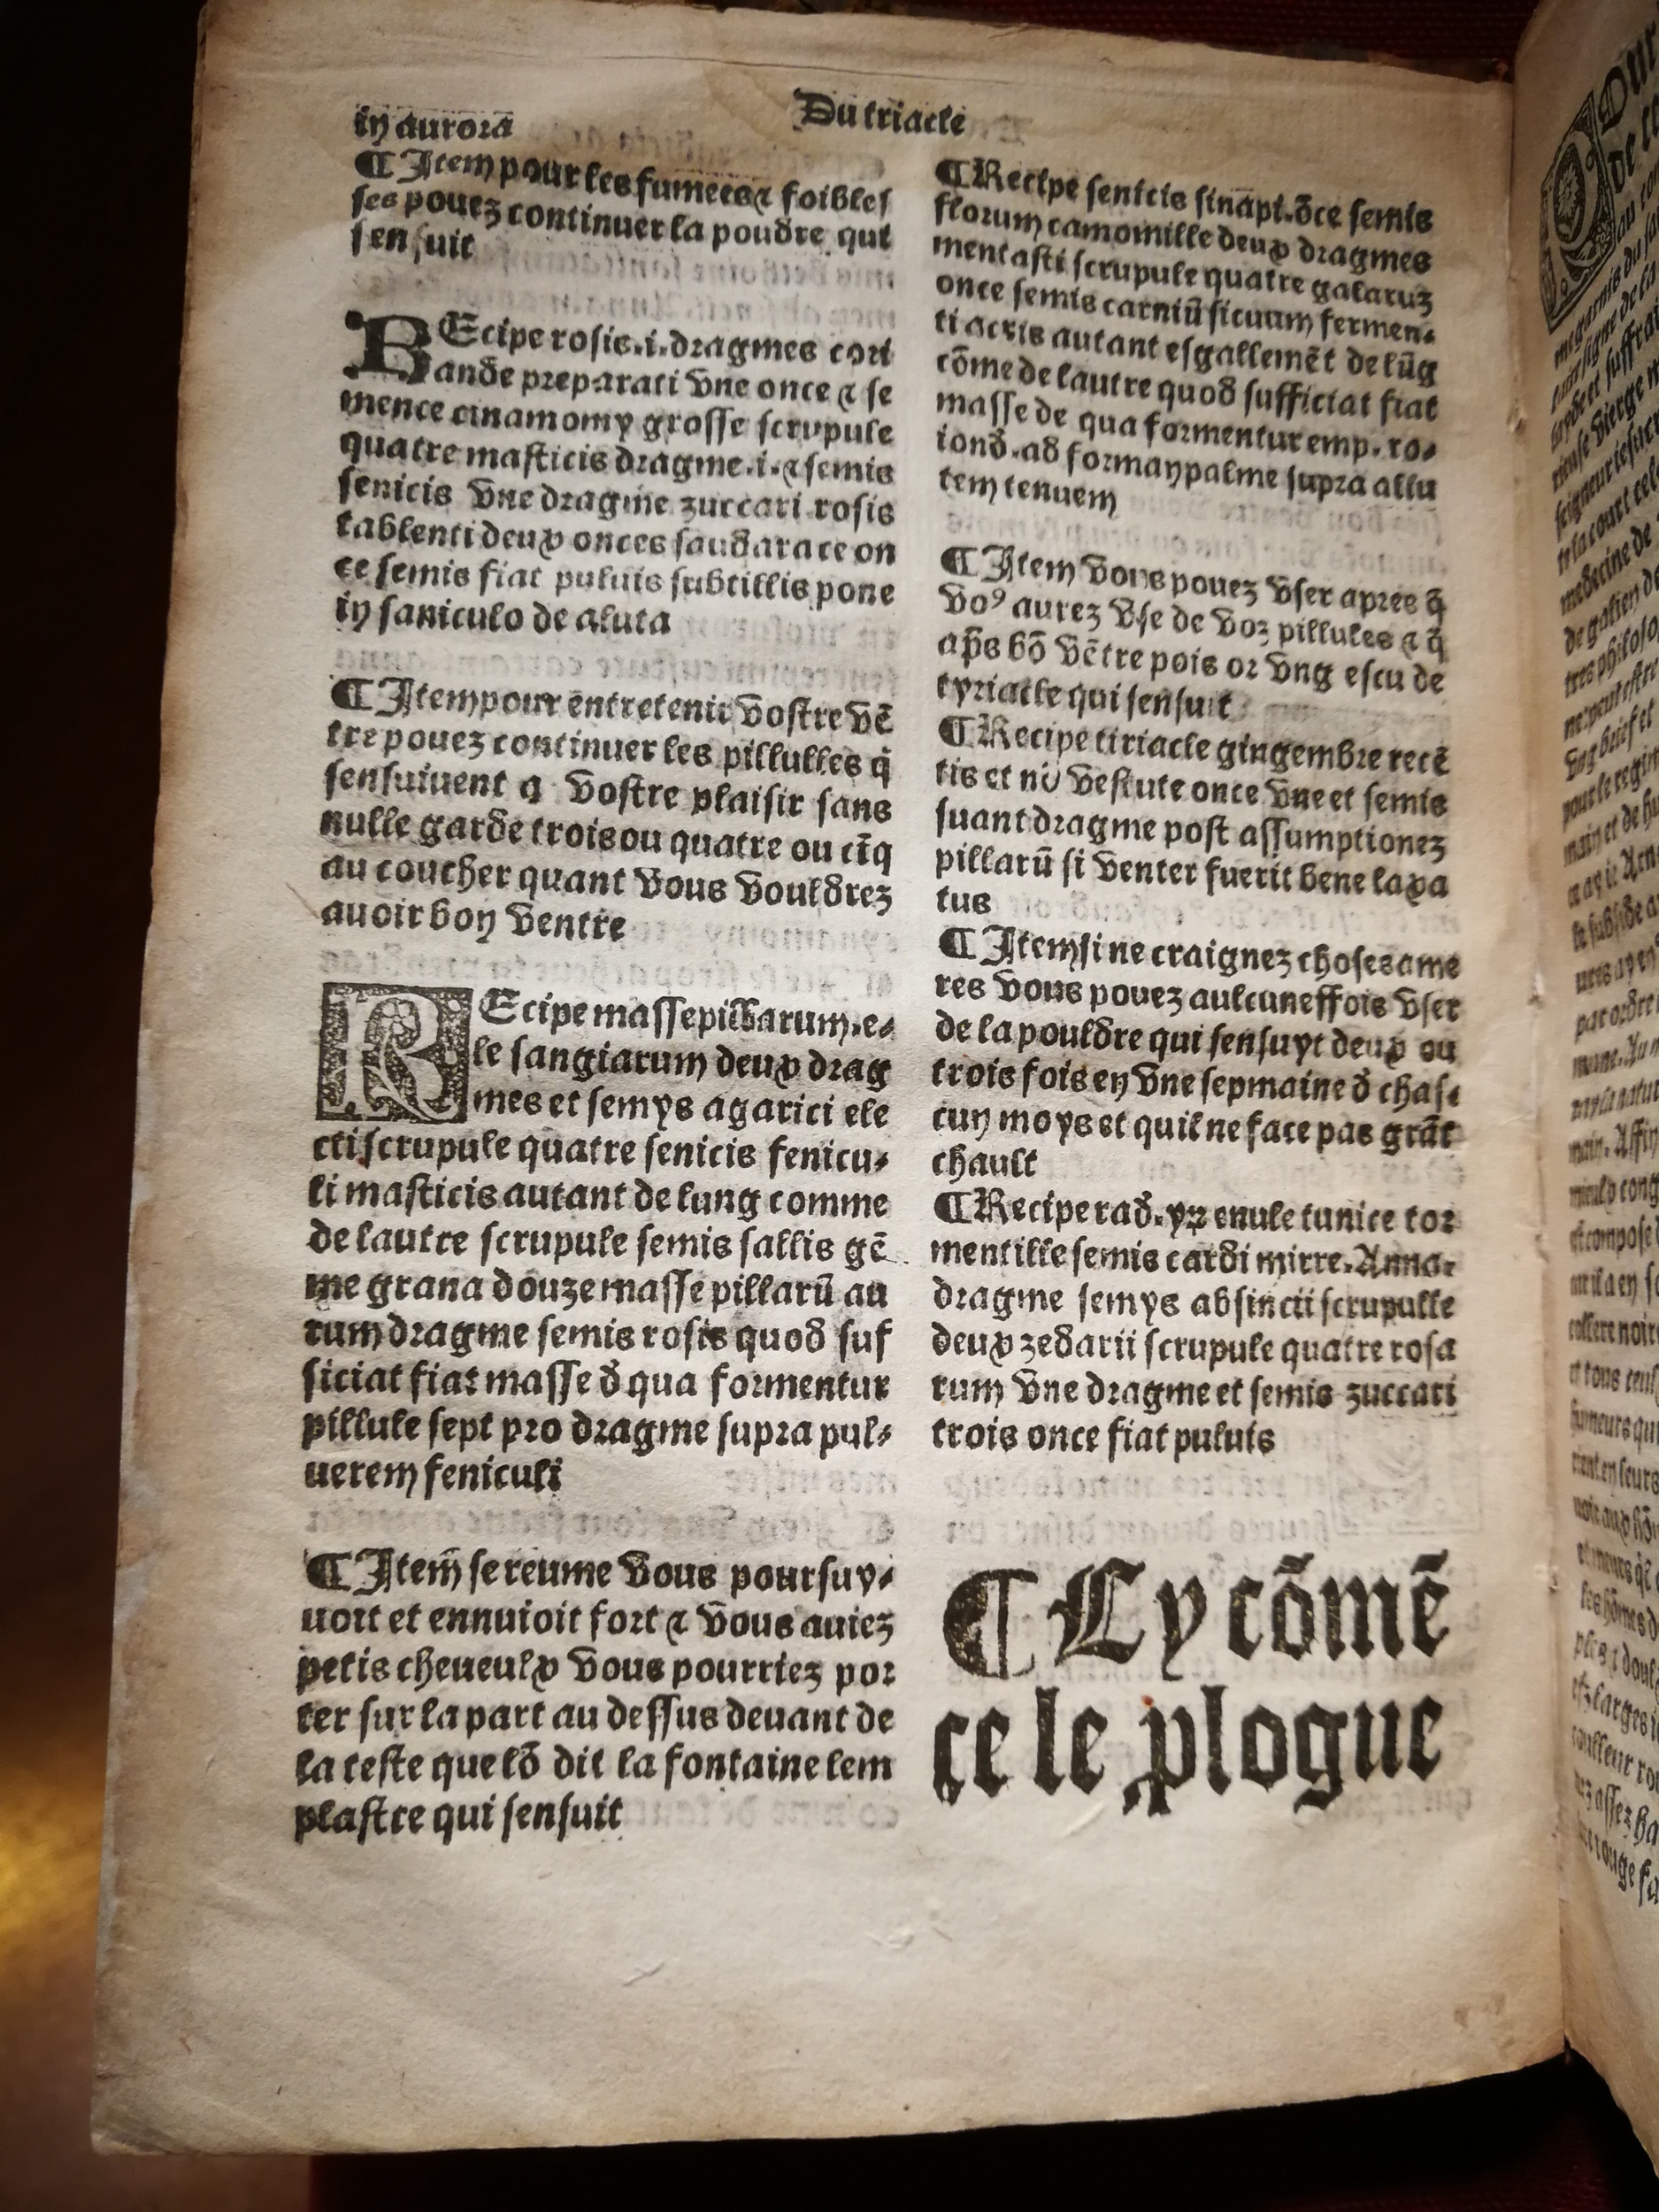 Du triacle
in aurora
¶ Item pour les fumees ⁊ foibles
ses pouez continuer la poudre qui
sensuit
REcipe rosis .i. dragmes cori
ande preparati vne once ⁊ se
mence cinamomy grosse scrupule
quatre masticis dragme .i. ⁊ semis
senicis vne dragme zuccari rosis
tablenti deux onces saudarace on
ce semis fiat puluis subtillis pone
in saniculo de aluta
¶ Item pour entretenir vostre vē
tre pouez continuer les pillulles q̄
sensuiuent a vostre plaisir sans
nulle garde trois ou quatre ou cīq
au coucher quant vous vouldrez
auoir bon ventre
REcipe masse pillarum. e-
le sangiarum deux drag
mes et semys agarici ele
cti scrupule quatre senicis fenicu-
li masticis autant de lung comme
de lautre scrupule semis sallis gē
me grana douze masse pillarū au
rum dragme semis rosis quod suf
ficiat fiat masse d̄ qua formentur
pillule sept pro dragme supra pul-
uerem feniculi
¶ Item se reume vous poursuy-
uoit et ennuioit fort ⁊ vous auiez
petis cheueulx vous pourriez por
ter sur la part au dessus deuant de
la teste que lō dit la fontaine lem
plastre qui sensuit
¶ Recipe senicis sinapi. ōce semis
florum camomille deux dragmes
mentasti scrupule quatre galaruz
once semis carniū sicuum fermen-
ti acris autant esgallemēt de lūg
cōme de lautre quod sufficiat fiat
masse de qua formentur emp. ro-
iond. ad forman palme supra allu
tem tenuem
¶ Item vous pouez vser apres q̄
voꝰ aurez vse de voz pillules ⁊ q̄
ap̄s bō vētre pois or vng escu de
tyriacle qui sensuit
¶ Recipe tiriacle gingembre recē
tis et nō vestute once vne et semis
suant dragme post assumptionez
pillarū si venter fuerit bene laxa
tus
¶ Item si ne craignez choses ame
res vous pouez aulcuneffois vser
de la pouldre qui sensuyt deux ou
trois fois en vne sepmaine d̄ chas-
cun moys et quil ne face pas grāt
chault
¶ Recipe rad. enule tunice tor
mentille semis cardi mirre. Anna-
dragme semys absincii scrupulle
deux zedarii scrupule quatre rosa
rum vne dragme et semis zuccari
trois once fiat puluis
¶ Cy cōmē
ce le plogue